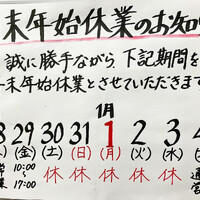 末年始休業のお知
誠に勝手ながら、下記期間を
末年始休業とさせていただきま
1月
8 29 30 31 1 2 3 4
(金) (土) (日) (月) (火) (水)
10:00 休 休 休 休 休
業 17:00 営